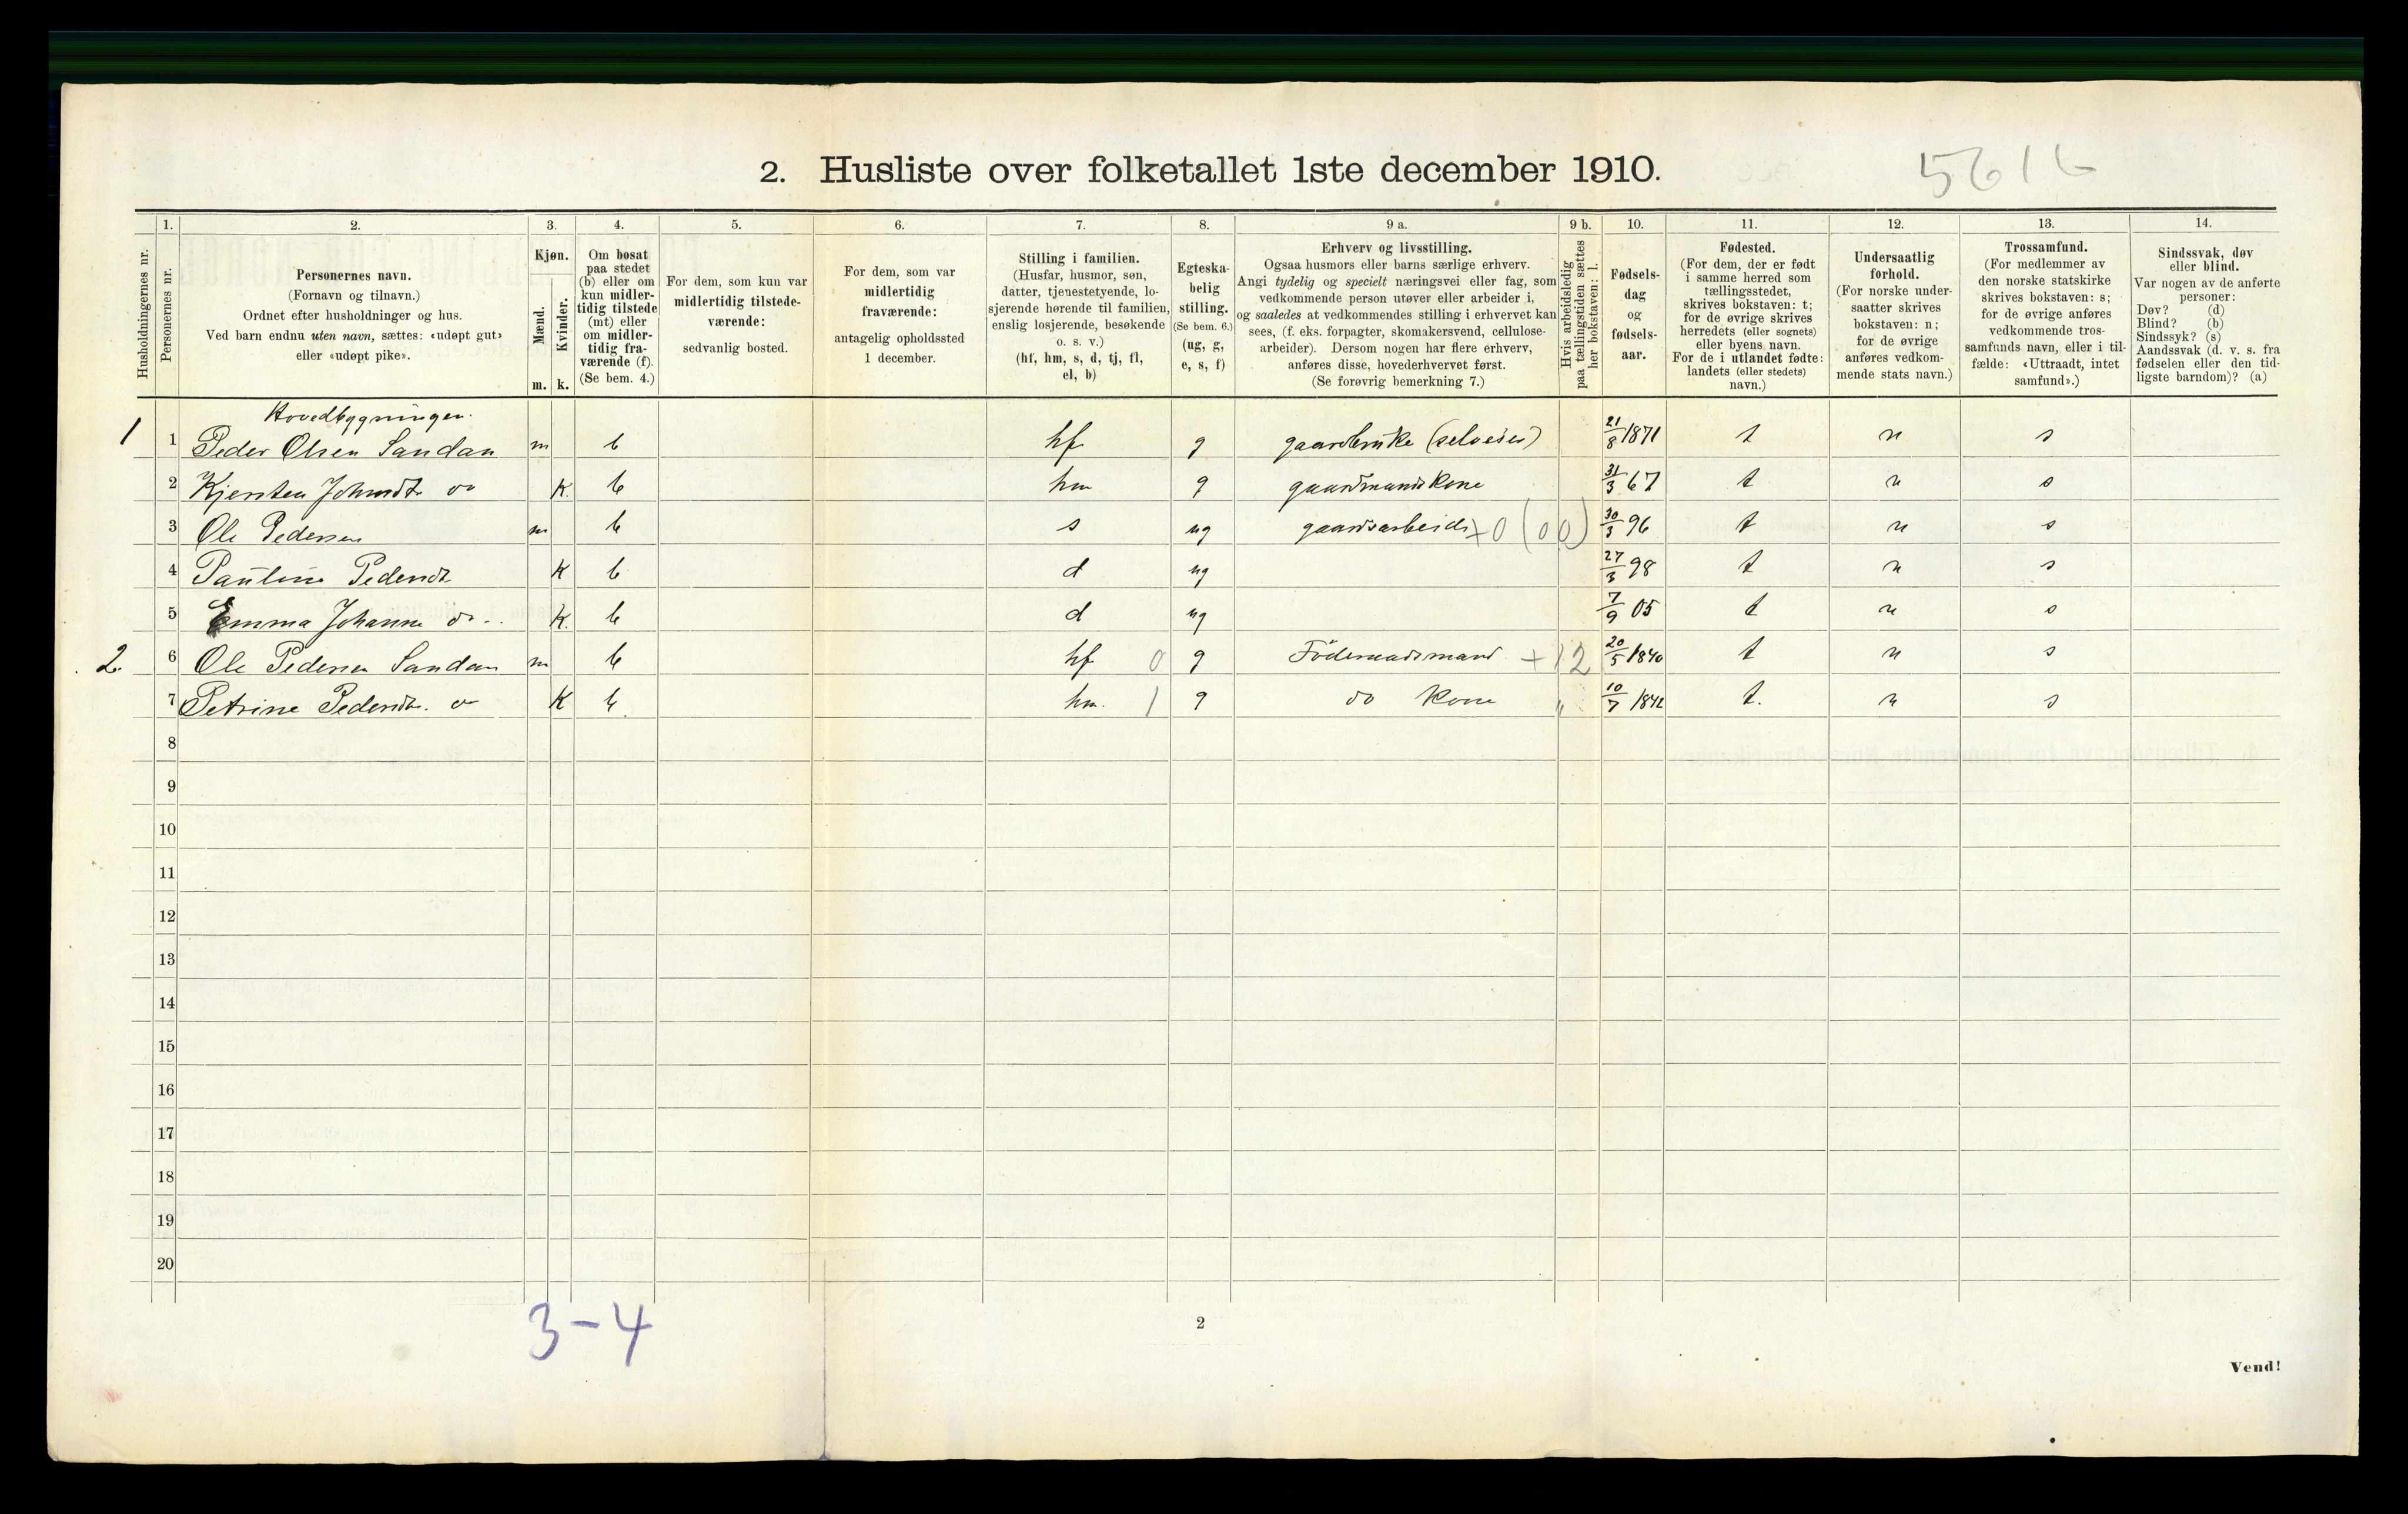 2. Husliste over folketallet 1ste december 1910.
Husholdningernes nr.
1. Personernes nr.
2. Personernes navn.
(Fornavn og tilnavn.)
Ordnet efter husholdninger og hus.
Ved barn endnu uten navn, sættes: «udøpt gut»
eller «udøpt pike».
3. Kjøn.
Mænd. m.
Kvinder. k.
4. Om bosat
paa stedet
(b) eller om
kun midler-
tidig tilstede
(mt) eller
om midler-
tidig fra-
værende (f).
(Se bem. 4.)
5. For dem, som kun var
midlertidig tilstede-
værende:
sedvanlig bosted.
6. For dem, som var
midlertidig
fraværende:
antagelig opholdssted
1 december.
7. Stilling i familien.
(Husfar, husmor, søn,
datter, tjenestetyende, lo-
sjerende hørende til familien,
enslig losjerende, besøkende
o. s. v.)
(hf, hm, s, d, tj, fl,
el, b)
8. Egteska-
belig
stilling.
(Se bem. 6.)
(ug, g,
e, s, f)
9 a. Erhverv og livsstilling.
Ogsaa husmors eller barns særlige erhverv.
Angi tydelig og specielt næringsvei eller fag, som
vedkommende person utøver eller arbeider i,
og saaledes at vedkommendes stilling i erhvervet kan
sees, (f. eks. forpagter, skomakersvend, cellulose-
arbeider). Dersom nogen har flere erhverv,
anføres disse, hovederhvervet først.
(Se forøvrig bemerkning 7.)
9 b. Hvis arbeidsledig
paa tællingstiden sættes
her bokstaven: l.
10. Fødsels-
dag
og
fødsels-
aar.
11. Fødested.
(For dem, der er født
i samme herred som
tællingsstedet,
skrives bokstaven: t;
for de øvrige skrives
herredets (eller sognets)
eller byens navn.
For de i utlandet fødte:
landets (eller stedets)
navn.)
12. Undersaatlig
forhold.
(For norske under-
saatter skrives
bokstaven: n;
for de øvrige
anføres vedkom-
mende stats navn.)
13. Trossamfund.
(For medlemmer av
den norske statskirke
skrives bokstaven: s;
for de øvrige anføres
vedkommende tros-
samfunds navn, eller i til-
fælde: «Uttraadt, intet
samfund».)
14. Sindssvak, døv
eller blind.
Var nogen av de anførte
personer:
Døv? (d)
Blind? (b)
Sindssyk? (s)
Aandssvak (d. v. s. fra
fødselen eller den tid-
ligste barndom)? (a)
Hovedbygningen.
1 1 Peder Olsen Sandan m b hf g gaardbruke (selveier) 21/8 1871 t n s
2 Kjersten Johnsdt. do K. b hm g gaardmandskone 31/3 67 t n s
3 Ole Pedersen m b s ug gaardsarbeide +0 (00) 30/3 96 t n s
4 Pauline Pedersdt K b d ug 27/3 98 t n s
5 Emma Johanne do K. b d ug 7/9 05 t n s
2. 6 Ole Pedersen Sandan m b hf 0 g Föderaadsmand +12 20/5 1840 t n s
7 Petrine Pedersdt. do K b. hm. 1 g do Kone " 10/7 1842 t. n s
8
9
10
11
12
13
14
15
16
17
18
19
20
3-4
2
Vend!